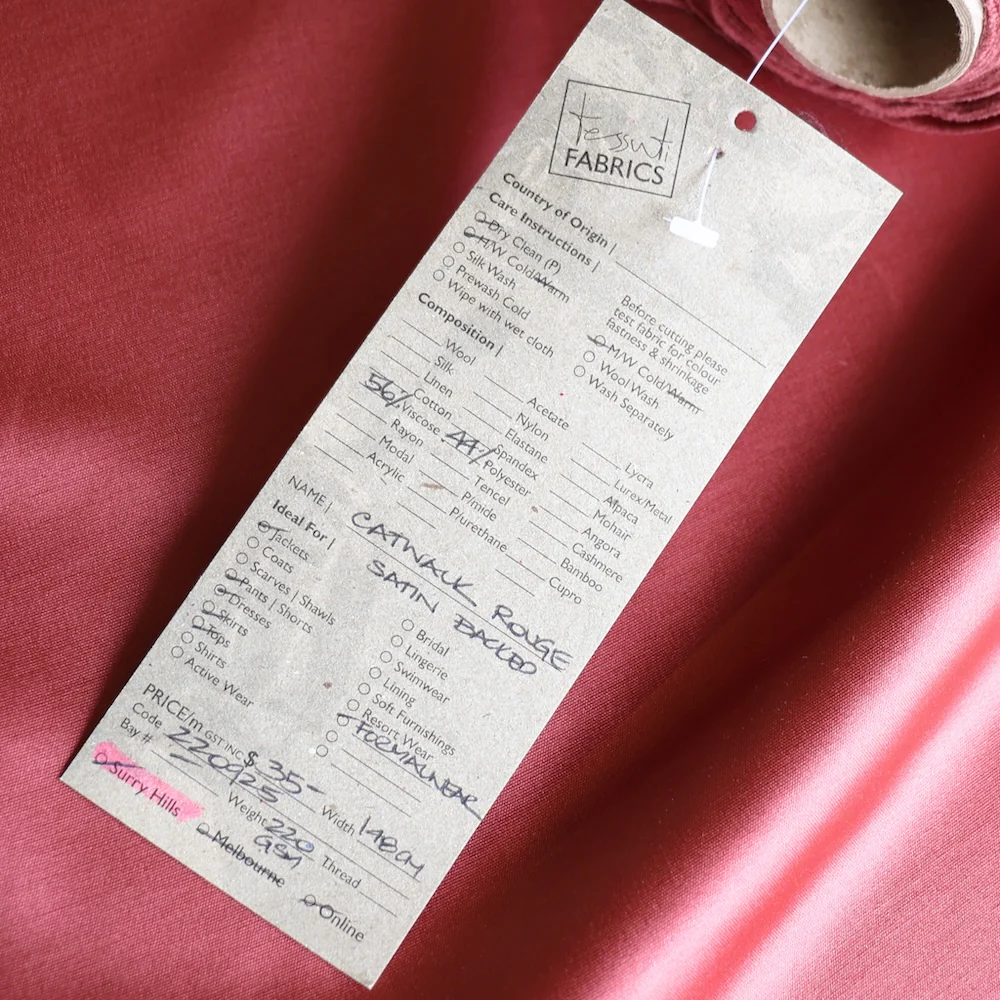 tessuti
FABRICS
Country of Origin |
Care Instructions |
Dry Clean (P)
H/W Cold/Warm
Silk Wash
Prewash Cold
Wipe with wet cloth
Before cutting please
test fabric for colour
fastness & shrinkage
M/W Cold/Warm
Wool Wash
Wash Separately
Composition |
Wool
Silk
Linen
Cotton
56% Viscose
Rayon
Modal
Acrylic
Acetate
Nylon
Elastane
Spandex
44% Polyester
Tencel
P/mide
P/urethane
Lycra
Lurex/Metal
Alpaca
Mohair
Angora
Cashmere
Bamboo
Cupro
NAME | CATWALK ROUGE
SATIN BACKED
Ideal For |
Jackets
Coats
Scarves | Shawls
Pants | Shorts
Dresses
Skirts
Tops
Shirts
Active Wear
Bridal
Lingerie
Swimwear
Lining
Soft Furnishings
Resort Wear
FORMALWEAR
PRICE/m GST INC $ 35-
Width 148CM
Code 220925
Weight 220 GSM
Thread
Bay #
Surry Hills
Melbourne
Online